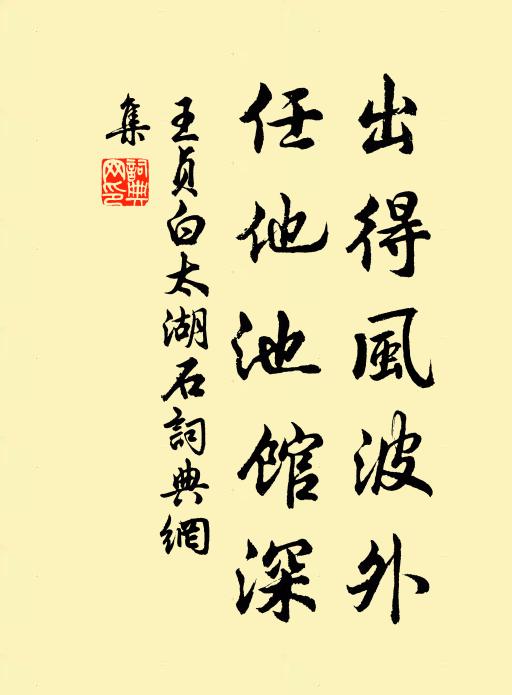 出得風波外
任他池館深
王貞白太湖石詞典網
集
詞典
网印